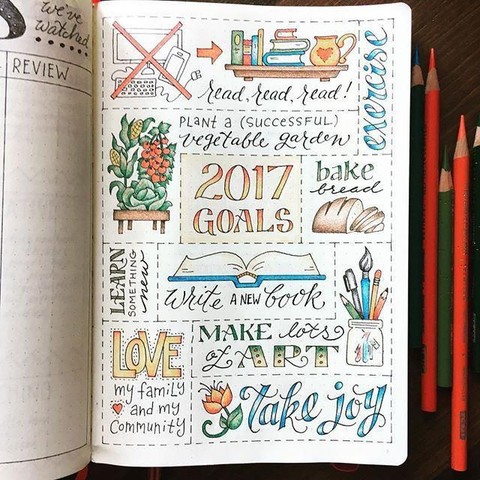 we've
watched
REVIEW
read, read, read!
exercise
PLANT A (SUCCESSFUL)
vegetable garden
2017
GOALS
bake
bread
LEARN
SOMETHING
new
Write A NEW book
LOVE
my family
and my
Community
MAKE lots
of ART
Take joy